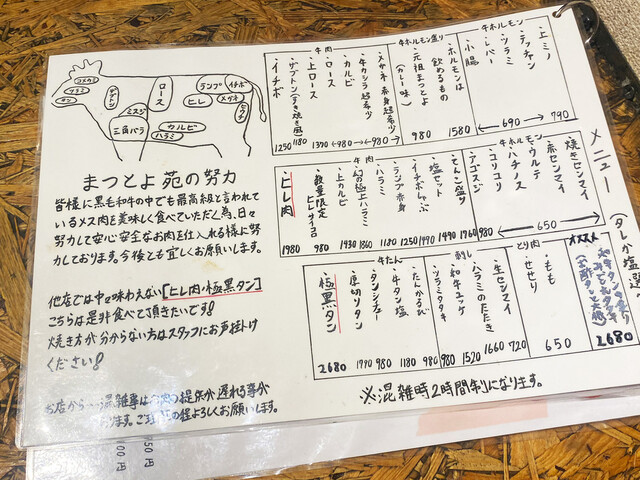 メニュー
(タレか塩選
牛ホルモン
・上ミノ
・テッチャン
・ツラミ
・レバー
・小腸
790
←690→
牛ホルモン盛り
・ホルモンは飲めるもの
1580
・元祖まつとよ
(カレー味)
980
牛肉
・メガネ 赤身超希少
・牛カシラ超希少
・カルビ
・ロース
・上ロース
・ザブトン(すき焼き風)
・イチボ
←980→
←980→
1370
1180
1250
・焼きセンマイ
・赤センマイ
牛ホルモン
・ウルテ
・ハチノス
・コリコリ
・アゴスジ
・てんこ盛り
・塩セット
←650→
980
1960
1490
牛肉
・イチボしゃぶ
・ランプ赤身
・ハラミ
・幻の極上ハラミ
・上カルビ
・数量限定 ヒレサイコロ
・ヒレ肉
1250
1180
1860
1930
980
1980
オススメ
2680
とり肉
・もも
・せせり
650
刺し
・生センマイ
・ハラミのたたき
・和牛ユッケ
・ツラミタタキ
720
1660
1520
980
牛たん
・たんかるび
・牛タン塩
・タンシチュー
・厚切りタン
・極黒タン
980
1180
980
1980
2680
※混雑時2時間制になります。
コメカミ
ツラミ
タン
ロース
ミスジ
三角バラ
カルビ
ハラミ
ヒレ
ランプ
イチボ
メガネ
まつとよ苑の努力
皆様に黒毛和牛の中でも最高級と言われて
いるメス肉を美味しく食べていただく為、日々
努力して安心安全なお肉を仕入れる様に努
力しております。今後とも宜しくお願いします。
他店では中々味わえない[ヒレ肉・極黒タン]
こちらは是非食べて頂きたいです!
焼き方が分からない方はスタッフにお声掛け
ください!
お店から…混雑時は
提供が遅れる事が
あります。ご
の程よろしくお願いします。
50円
00円